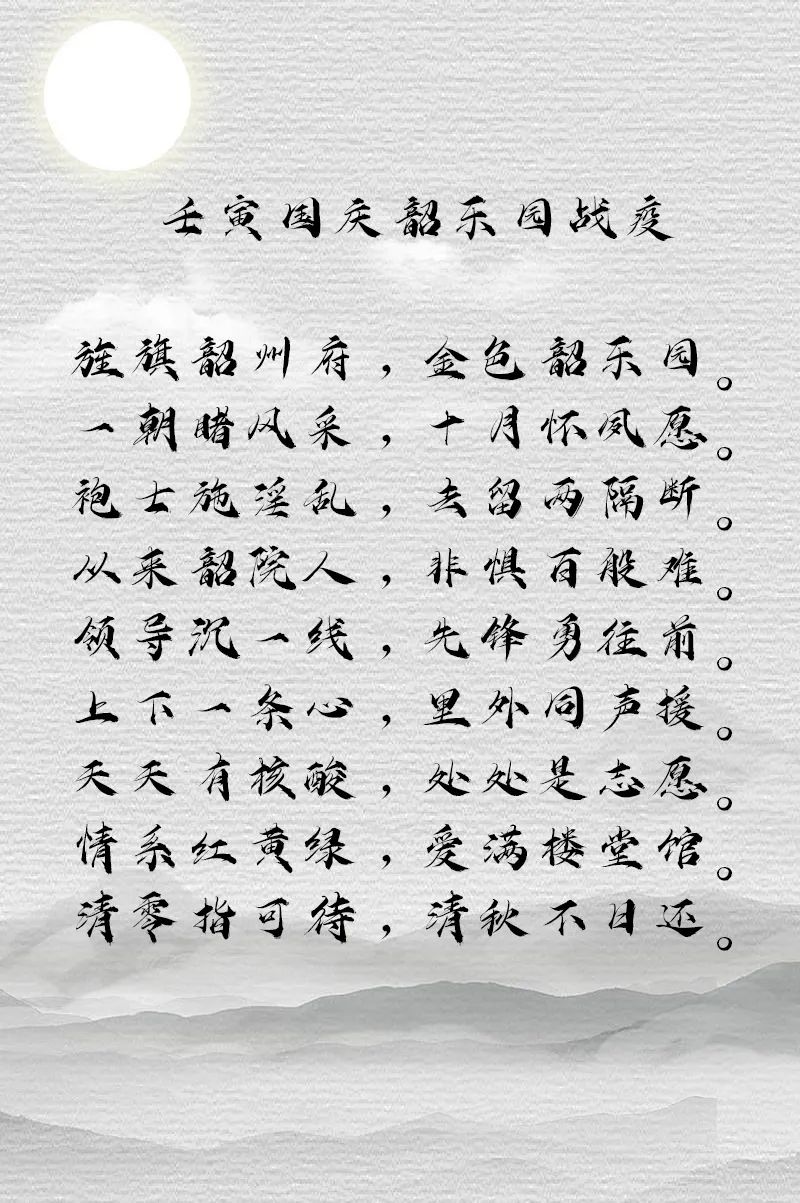 壬寅国庆韶乐园战疫
旌旗韶州府，金色韶乐园。
一朝睹风采，十月怀夙愿。
袍士施淫乱，去留两隔断。
从来韶院人，非惧百般难。
领导沉一线，先锋勇往前。
上下一条心，里外同声援。
天天有核酸，处处是志愿。
情系红黄绿，爱满楼堂馆。
清零指可待，清秋不日还。